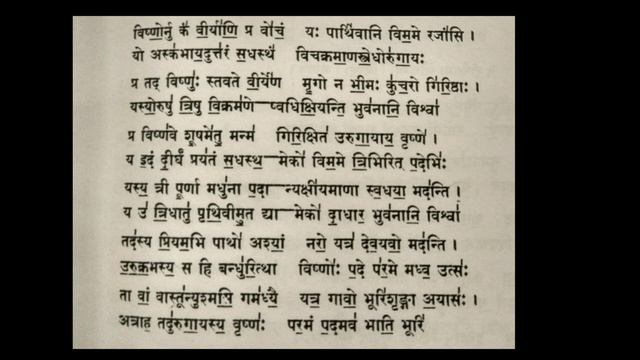 विष्णो॒र्नु कं॑ वी॒र्या॑णि॒ प्र वो॑चं॒ यः पार्थि॑वानि विम॒मे रजां॑सि।
यो अस्क॑भाय॒दुत्त॑रं स॒धस्थं॑ विचक्रमा॒णस्त्रे॒धोरु॑गा॒यः
प्र तद् विष्णु॑ः स्तवते वी॒र्ये॑ण मृ॒गो न भी॒मः कु॑च॒रो गि॑रि॒ष्ठाः।
यस्यो॒रुषु॑ त्रि॒षु वि॒क्रम॑णे—ष्वधिक्षि॒यन्ति॒ भुव॑नानि॒ विश्वा॑
प्र विष्ण॑वे शू॒षमे॑तु॒ मन्म॑ गिरि॒क्षित॑ उरुगा॒याय॒ वृष्णे॑।
य इ॒दं दी॒र्घं प्रय॑तं स॒धस्थ॒—मेको॑ विम॒मे त्रि॒भिरित् प॒देभि॑ः
यस्य॒ त्री पू॒र्णा मधु॑ना प॒दा—न्यक्षी॑यमाणा स्व॒धया॒ मद॑न्ति।
य उ॑ त्रि॒धातु॑ पृथि॒वीमु॒त द्या—मेको॑ दा॒धार॒ भुव॑नानि॒ विश्वा॑
तद॑स्य प्रि॒यम॒भि पाथो॑ अश्यां॒ नरो॒ यत्र॑ देव॒यवो॒ मद॑न्ति।
उ॒रु॒क्र॒मस्य॒ स हि बन्धु॑रि॒त्था विष्णो॑ः प॒दे प॑र॒मे मध्व॒ उत्स॑ः
ता वां॒ वास्तू॑न्युश्मसि॒ गम॑ध्यै॒ यत्र॒ गावो॒ भूरि॑शृङ्गा अ॒यास॑ः।
अत्राह॒ तदु॑रुगा॒यस्य॒ वृष्ण॑ः पर॒मं प॒दमव॑ भाति॒ भूरि॑